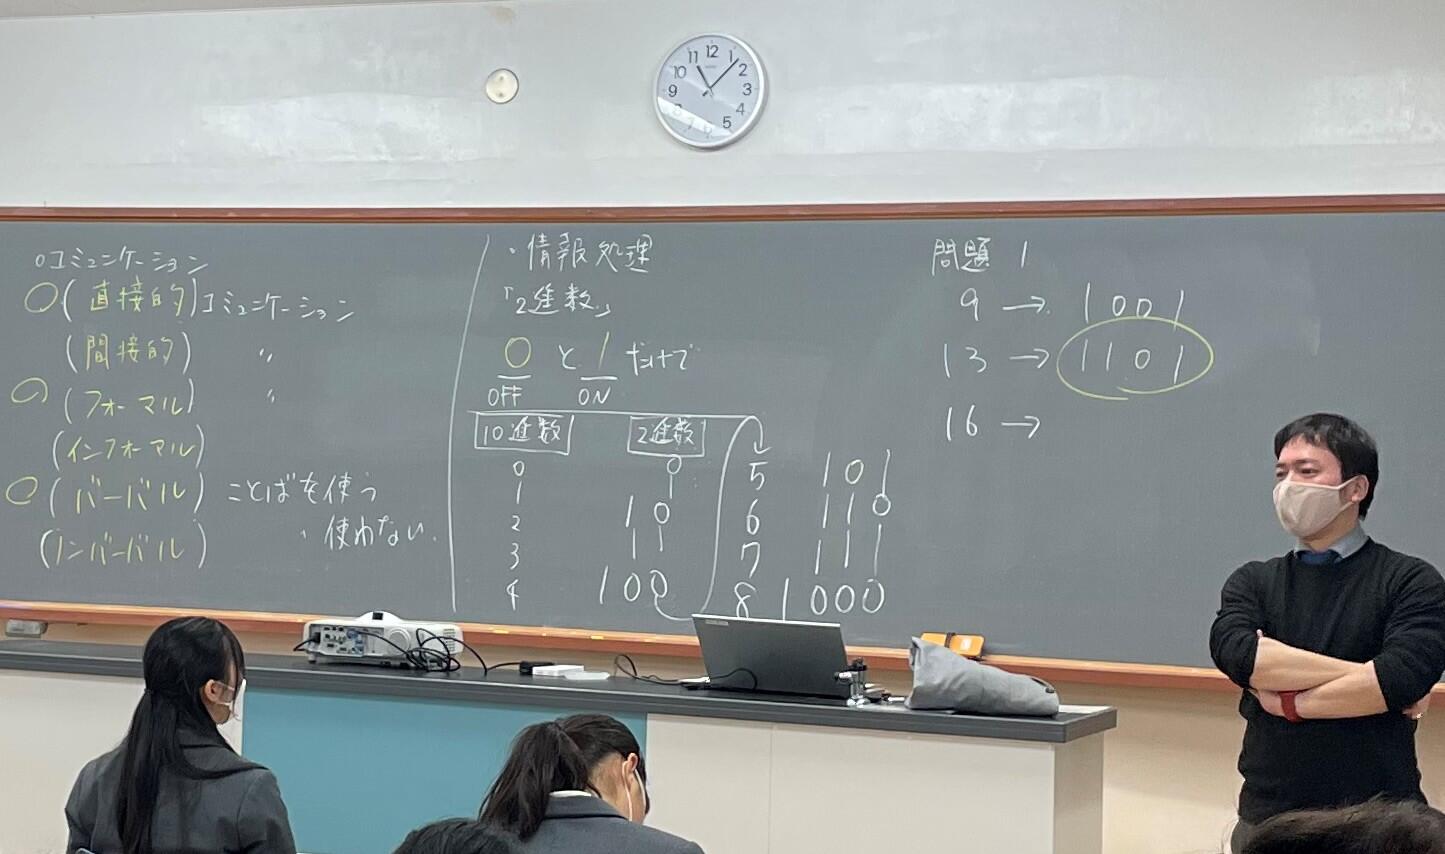 ○コミュニケーション
○(直接的)コミュニケーション
(間接的) 〃
○(フォーマル) 〃
(インフォーマル)
○(バーバル)ことばを使う
(ノンバーバル) 〃 使わない。
・情報処理
「2進数」
0と1だけで
OFF ON
10進数 2進数
0 0
1 1
2 10
3 11
4 100
5 101
6 110
7 111
8 1000
問題 1
9 → 1001
13 → 1101
16 →
11 12 1
10 2
9 3
8 4
7 6 5